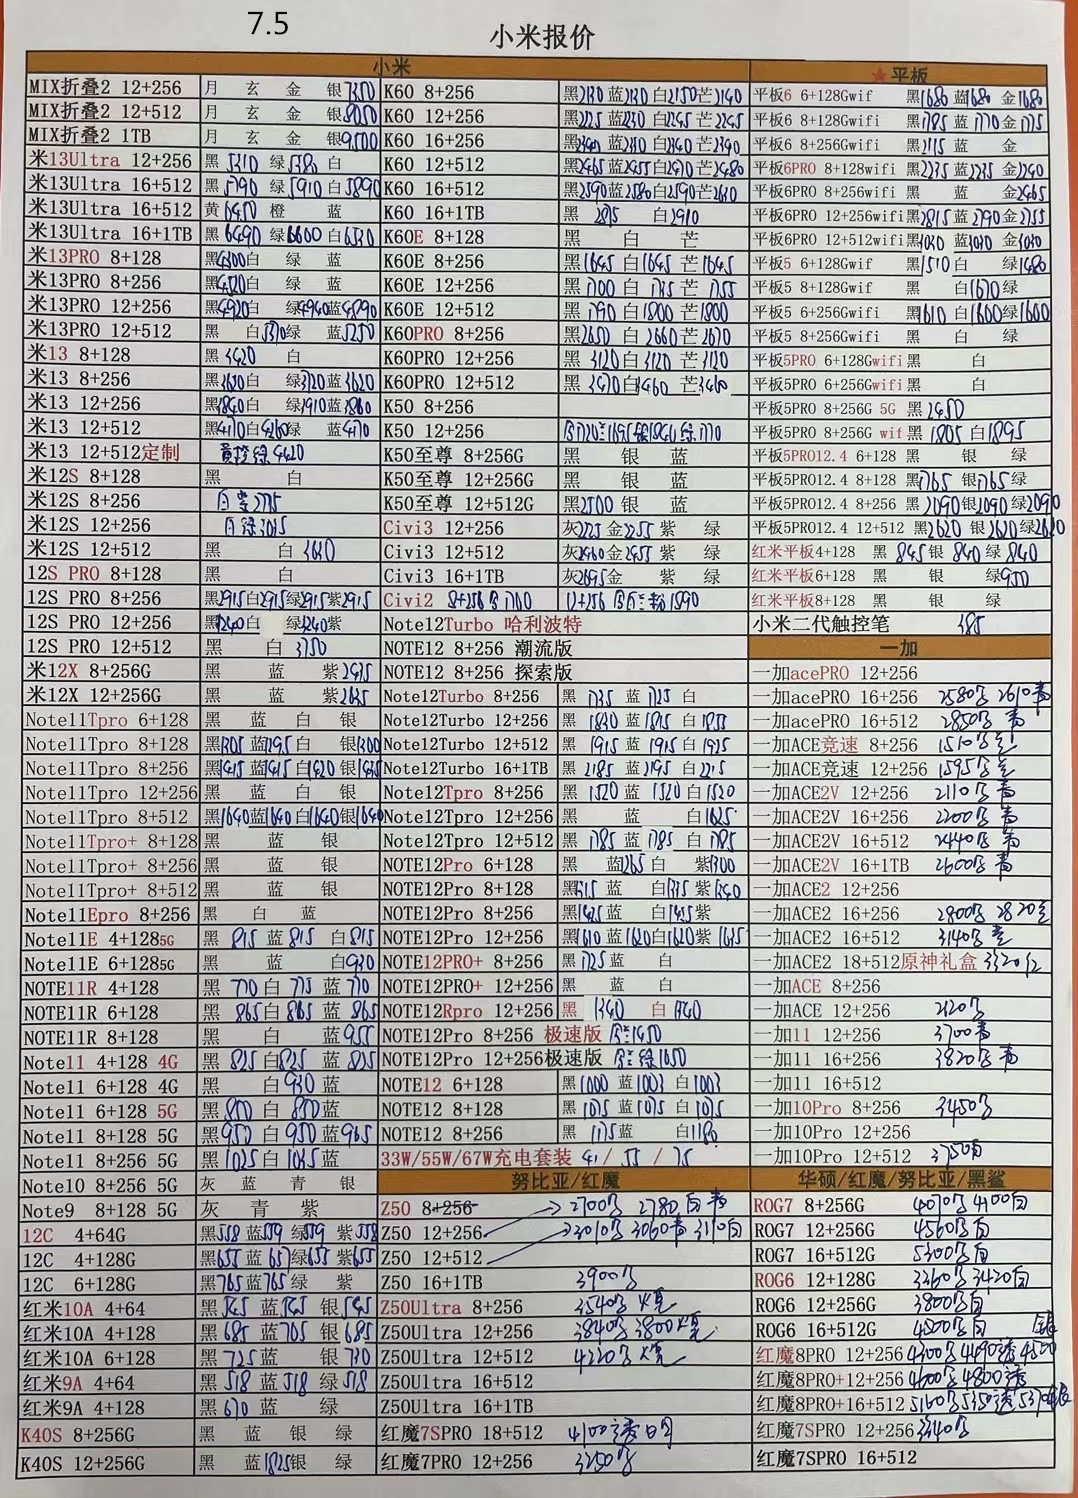 7.5
小米报价
小米
★平板
MIX折叠2 12+256 月 玄 金 银7350 K60 8+256 黑2130 蓝2130 白2150 芒2140 平板6 6+128Gwif 黑1680 蓝1680 金1680
MIX折叠2 12+512 月 玄 金 银8050 K60 12+256 黑2225 蓝2230 白2245 芒2245 平板6 8+128Gwifi 黑1785 蓝1770 金1775
MIX折叠2 1TB 月 玄 金 银9500 K60 16+256 黑2340 蓝2310 白2340 芒2340 平板6 8+256Gwifi 黑2115 蓝 金
米13Ultra 12+256 黑5310 绿5380 白 K60 12+512 黑2465 蓝2455 白2470 芒2480 平板6PRO 8+128wifi 黑2235 蓝2235 金2240
米13Ultra 16+512 黑5790 绿5910 白5890 K60 16+512 黑2590 蓝2580 白2590 芒2630 平板6PRO 8+256wifi 黑 蓝 金2465
米13Ultra 16+512 黄6450 橙 蓝 K60 16+1TB 黑2875 白2910 平板6PRO 12+256wifi 黑2815 蓝2790 金2755
米13Ultra 16+1TB 黑6490 绿6600 白6530 K60E 8+128 黑 白 芒 平板6PRO 12+512wifi 黑3030 蓝3030 金3030
米13PRO 8+128 黑4300 白 绿 蓝 K60E 8+256 黑1645 白1645 芒1645 平板5 6+128Gwif 黑1510 白 绿1480
米13PRO 8+256 黑4520 白 绿 蓝 K60E 12+256 黑1700 白1745 芒1755 平板5 8+128Gwif 黑 白1670 绿
米13PRO 12+256 黑4920 白 绿4940 蓝4890 K60E 12+512 黑1790 白1800 芒1800 平板5 6+256Gwif 黑1610 白1600 绿1600
米13PRO 12+512 黑 白5370 绿 蓝5250 K60PRO 8+256 黑2650 白2660 芒2670 平板5 8+256Gwif 黑 白 绿
米13 8+128 黑3420 白 K60PRO 12+256 黑3120 白3120 芒3120 平板5PRO 6+128Gwifi 黑 白
米13 8+256 黑3620 白 绿3720 蓝3620 K60PRO 12+512 黑3470 白3460 芒3460 平板5PRO 6+256Gwifi 黑 白
米13 12+256 黑3840 白 绿3910 蓝3860 K50 8+256 平板5PRO 8+256G 5G 黑2450
米13 12+512 黑4170 白4260 绿 蓝4170 K50 12+256 平板5PRO 8+256G wif 黑1805 白1895
米13 12+512定制 4420 K50至尊 8+256G 黑 银 蓝 平板5PRO12.4 6+128 黑 银 绿
米12S 8+128 黑 白 K50至尊 12+256G 黑 银 蓝 平板5PRO12.4 8+128 黑1765 银1765 绿1765
米12S 8+256 K50至尊 12+512G 黑2500 银 蓝 平板5PRO12.4 8+256 黑2090 银2090 绿2090
米12S 12+256 Civi3 12+256 灰2225 金2255 紫 绿 平板5PRO12.4 12+512 黑2620 银2620 绿2620
米12S 12+512 黑 白3610 Civi3 12+512 灰2460 金2455 紫 绿 红米平板4+128 黑845 银840 绿840
12S PRO 8+128 黑 白 Civi3 16+1TB 灰2695 金 紫 绿 红米平板6+128 黑 银 绿950
12S PRO 8+256 黑2915 白2915 绿2915 紫2915 Civi2 8+256 1760 12+256 1890 红米平板8+128 黑 银 绿
12S PRO 12+256 黑3240 白 绿3240 紫 Note12Turbo 哈利波特 小米二代触控笔 385
12S PRO 12+512 黑 白3750 NOTE12 8+256 潮流版 一加
米12X 8+256G 黑 蓝 紫2435 NOTE12 8+256 探索版 一加acePRO 12+256
米12X 12+256G 黑 蓝 紫2645 Note12Turbo 8+256 黑1735 蓝1725 白 一加acePRO 16+256 2580 2610青
Note11Tpro 6+128 黑 蓝 白 银 Note12Turbo 12+256 黑1830 蓝1815 白1855 一加acePRO 16+512 2850 青
Note11Tpro 8+128 黑1305 蓝1295 白 银1300 Note12Turbo 12+512 黑1915 蓝1915 白1925 一加ACE竞速 8+256 1510
Note11Tpro 8+256 黑1415 蓝1415 白1420 银1435 Note12Turbo 16+1TB 黑2185 蓝2195 白2215 一加ACE竞速 12+256 1595
Note11Tpro 12+256 黑 蓝 白 银 Note12Tpro 8+256 黑1520 蓝1520 白1520 一加ACE2V 12+256 2110 青
Note11Tpro 8+512 黑1640 蓝1640 白1640 银1640 Note12Tpro 12+256 黑 蓝 白1625 一加ACE2V 16+256 2200 青
Note11Tpro+ 8+128 黑 蓝 银 Note12Tpro 12+512 黑1785 蓝1785 白1785 一加ACE2V 16+512 2440 青
Note11Tpro+ 8+256 黑 蓝 银 NOTE12Pro 6+128 黑 蓝1265 白 紫1300 一加ACE2V 16+1TB 2600 青
Note11Tpro+ 8+512 黑 蓝 银 NOTE12Pro 8+128 黑1315 蓝 白1335 紫1340 一加ACE2 12+256
Note11Epro 8+256 黑 白 蓝 NOTE12Pro 8+256 黑1425 蓝 白1425 紫 一加ACE2 16+256 2800 2820
Note11E 4+1285G 黑815 蓝815 白815 NOTE12Pro 12+256 黑1610 蓝1620 白1620 紫1635 一加ACE2 16+512 3140
Note11E 6+1285G 黑 蓝 白930 NOTE12PRO+ 8+256 黑1725 蓝 白 一加ACE2 18+512原神礼盒 3320
NOTE11R 4+128 黑770 白775 蓝770 NOTE12PRO+ 12+256 黑 蓝 白 一加ACE 8+256
NOTE11R 6+128 黑865 白865 蓝865 NOTE12Rpro 12+256 黑1340 白1340 一加ACE 12+256 2120
NOTE11R 8+128 黑 白 蓝955 NOTE12Pro 8+256 极速版 1450 一加11 12+256 3700 青
Note11 4+128 4G 黑825 白825 蓝825 NOTE12Pro 12+256极速版 1650 一加11 16+256 3820 青
Note11 6+128 4G 黑 白930 蓝 NOTE12 6+128 黑1000 蓝1003 白1003 一加11 16+512
Note11 6+128 5G 黑850 白850 蓝 NOTE12 8+128 黑1075 蓝1075 白1075 一加10Pro 8+256 3450
Note11 8+128 5G 黑950 白950 蓝965 NOTE12 8+256 黑1175 蓝 白1180 一加10Pro 12+256
Note11 8+256 5G 黑1025 白1065 蓝 33W/55W/67W充电套装 41 / 55 / 75 一加10Pro 12+512 3750
Note10 8+256 5G 灰 蓝 青 银 努比亚/红魔 华硕/红魔/努比亚/黑鲨
Note9 8+128 5G 灰 青 紫 Z50 8+256 2700 2780 ROG7 8+256G 4010 4100白
12C 4+64G 黑558 蓝559 绿559 紫558 Z50 12+256 3010 3060青 3110白 ROG7 12+256G 4560 白
12C 4+128G 黑655 蓝657 绿655 紫655 Z50 12+512 ROG7 16+512G 5300 白
12C 6+128G 黑765 蓝765 绿 紫 Z50 16+1TB 3900 ROG6 12+128G 3360 3420白
红米10A 4+64 黑545 蓝545 银545 Z50Ultra 8+256 3540 ROG6 12+256G 3800 白
红米10A 4+128 黑685 蓝705 银685 Z50Ultra 12+256 3840 3800 ROG6 16+512G 4500 白
红米10A 6+128 黑725 蓝 银730 Z50Ultra 12+512 4220 红魔8PRO 12+256 4300 4490 4500
红米9A 4+64 黑518 蓝518 绿518 Z50Ultra 16+512 红魔8PRO+12+256 4600 4800
红米9A 4+128 黑670 蓝 绿 Z50Ultra 16+1TB 红魔8PRO+16+512 5160 5350
K40S 8+256G 黑 蓝 银 绿 红魔7SPRO 18+512 4100 红魔7SPRO 12+256 3340
K40S 12+256G 黑 蓝1825 银 绿 红魔7PRO 12+256 3250 红魔7SPRO 16+512